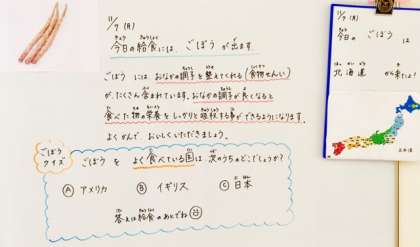 11/7 (月)
今日の給食には、ごぼう が出ます。
ごぼう には、おなかの調子を整えてくれる(食物せんい)
が、たくさん含まれています。おなかの調子が良くなると
食べた物の栄養をしっかりと吸収する事ができるようになります。
よくかんで、おいしくいただきましょう。
ごぼう
クイズ
ごぼう を よく食べている国は次のうちどこでしょうか?
Ⓐ アメリカ Ⓑ イギリス Ⓒ 日本
答えは給食のあとでね
11/7 (月)
今日の ごぼう は
北海道 から来たよ!